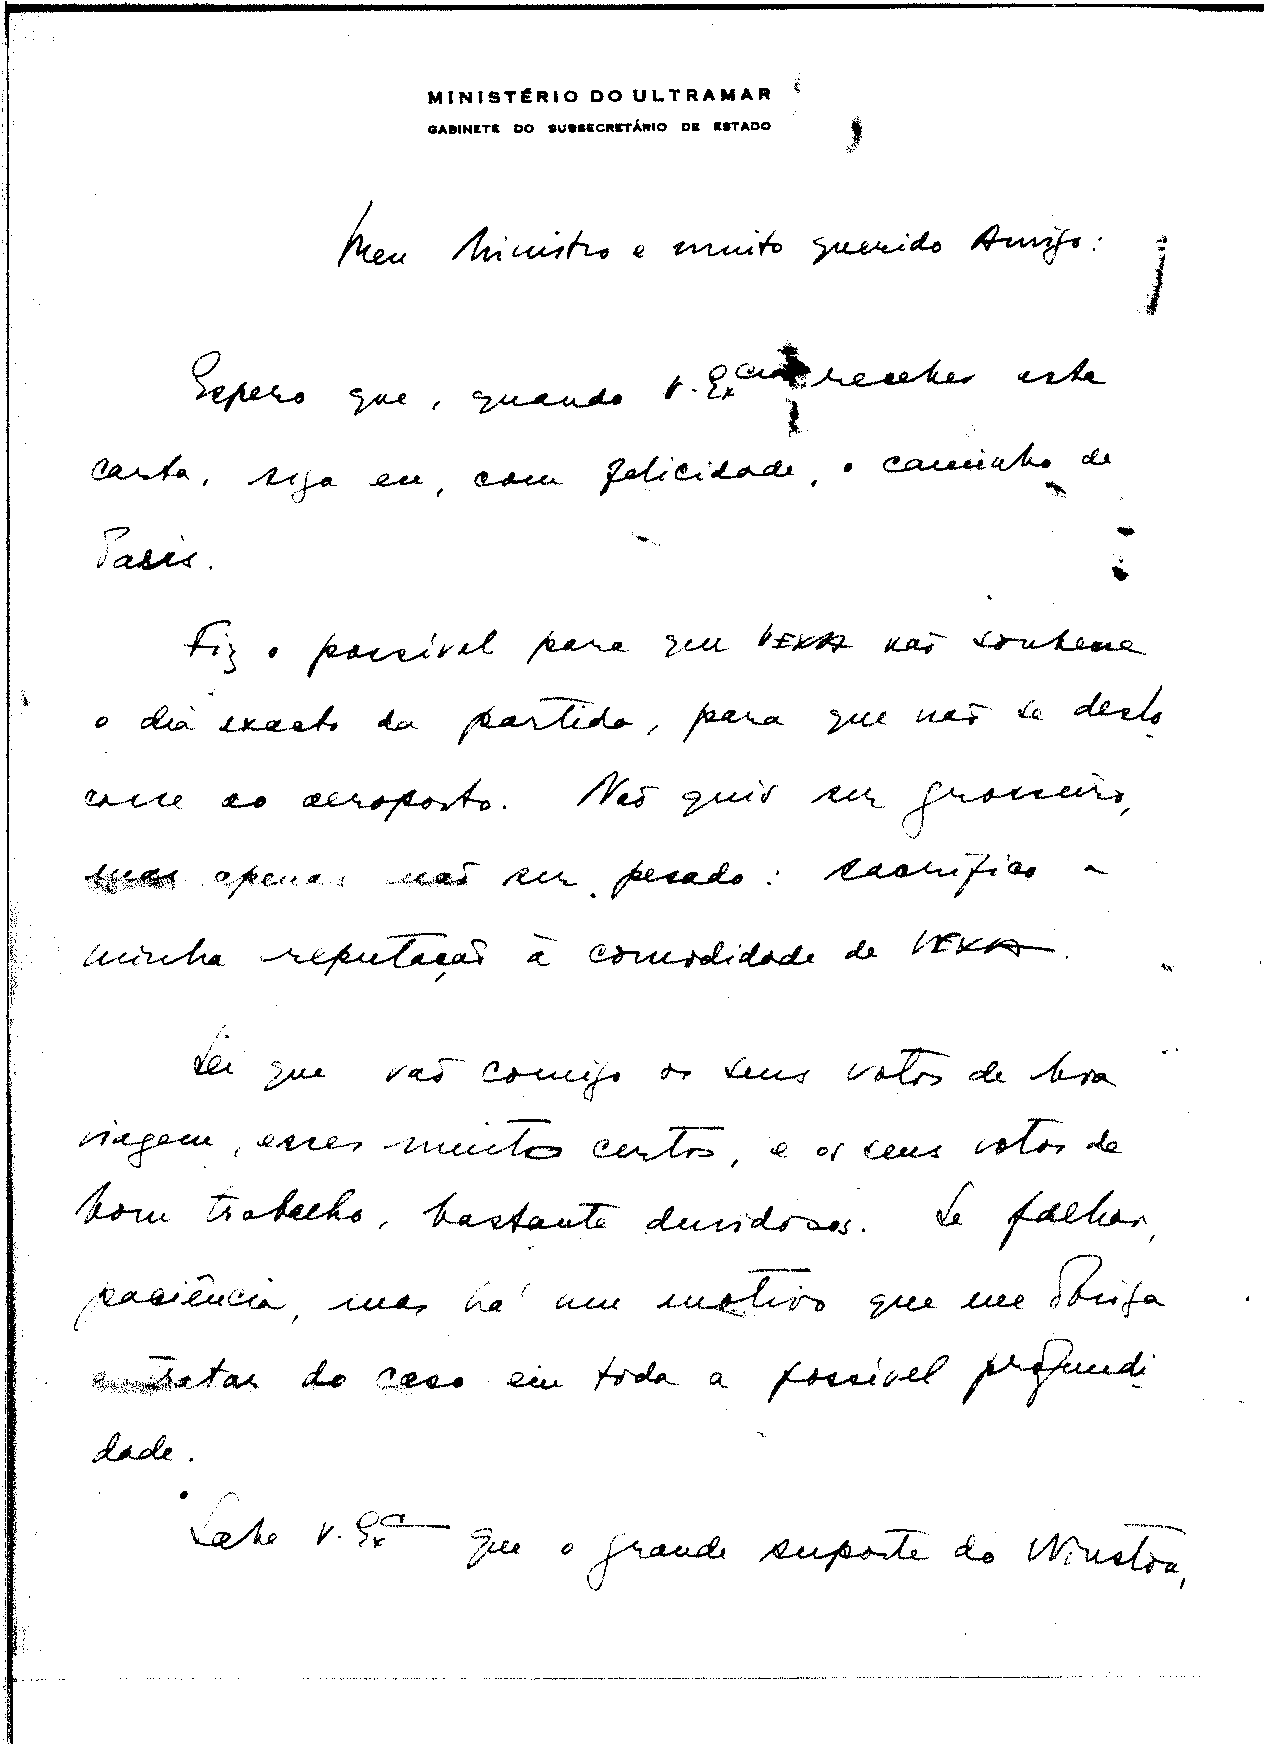 MINISTÉRIO DO ULTRAMAR
GABINETE DO SUBSECRETÁRIO DE ESTADO
Meu Ministro e muito querido Amigo:
Espero que, quando V. Excia receber esta
carta, siga eu, com felicidade, o caminho de
Paris.
Fiz o possível para que VEXA não soubesse
o dia exacto da partida, para que não se deslo
casse ao aeroporto. Não quis ser grosseiro,
mas apenas não ser pesado: sacrifico a
minha reputação à comodidade de VEXA.
Sei que vão comigo os seus votos de boa
viagem, esses muito certos, e os seus votos de
bom trabalho, bastante duvidosos. Se falhar,
paciência, mas há um motivo que me obriga
tratar do caso em toda a possível profundi
dade.
Sabe V. Exa que o grande suporte do Winston,